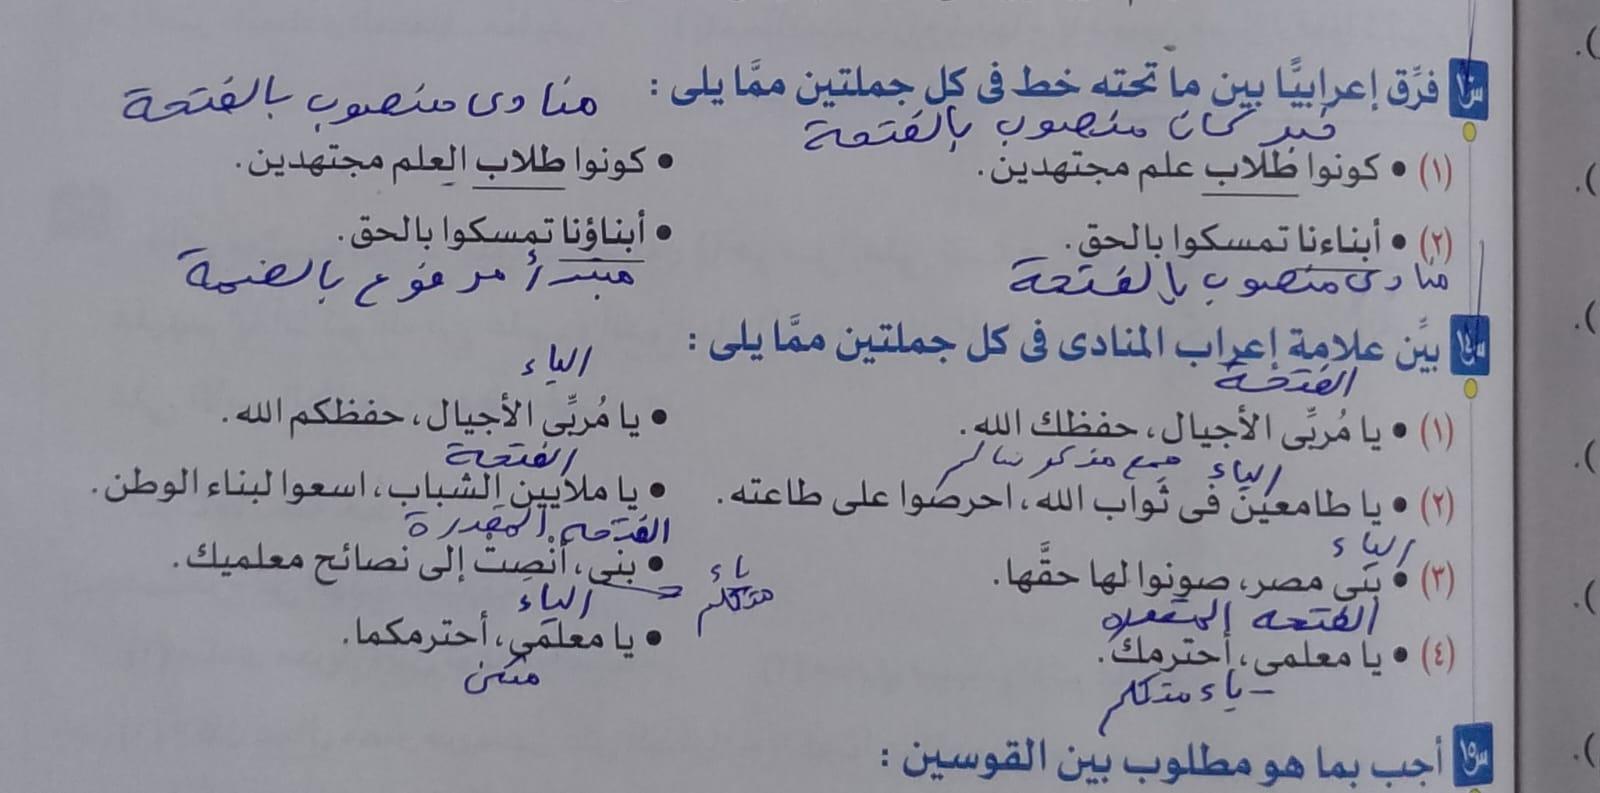 س١٣ فرِّق إعرابيًّا بين ما تحته خط فى كل جملتين ممَّا يلى :
منادى منصوب بالفتحة
خبر كان منصوب بالفتحة
(١) • كونوا طلاب علم مجتهدين.
• كونوا طلاب العلم مجتهدين.
(٢) • أبناءنا تمسكوا بالحق.
• أبناؤنا تمسكوا بالحق.
منادى منصوب بالفتحة
مبتدأ مرفوع بالضمة
س١٤ بيِّن علامة إعراب المنادى فى كل جملتين ممَّا يلى :
الفتحة
الياء
(١) • يا مُربِّى الأجيال، حفظك الله.
• يا مُربِّى الأجيال، حفظكم الله.
الياء جمع مذكر سالم
الفتحة
(٢) • يا طامعين فى ثَواب الله، احرصوا على طاعته.
• يا ملايين الشباب، اسعوا لبناء الوطن.
الياء
الفتحه المقدرة
(٣) • بَنى مصر، صونوا لها حقَّها.
• بنى، أنصِت إلى نصائح معلميك.
ياء متكلم
الفتحه المقدره
الياء
(٤) • يا معلمى، أحترمك.
• يا معلمَى، أحترمكما.
ياء متكلم
مثنى
س١٥ أجب بما هو مطلوب بين القوسين :